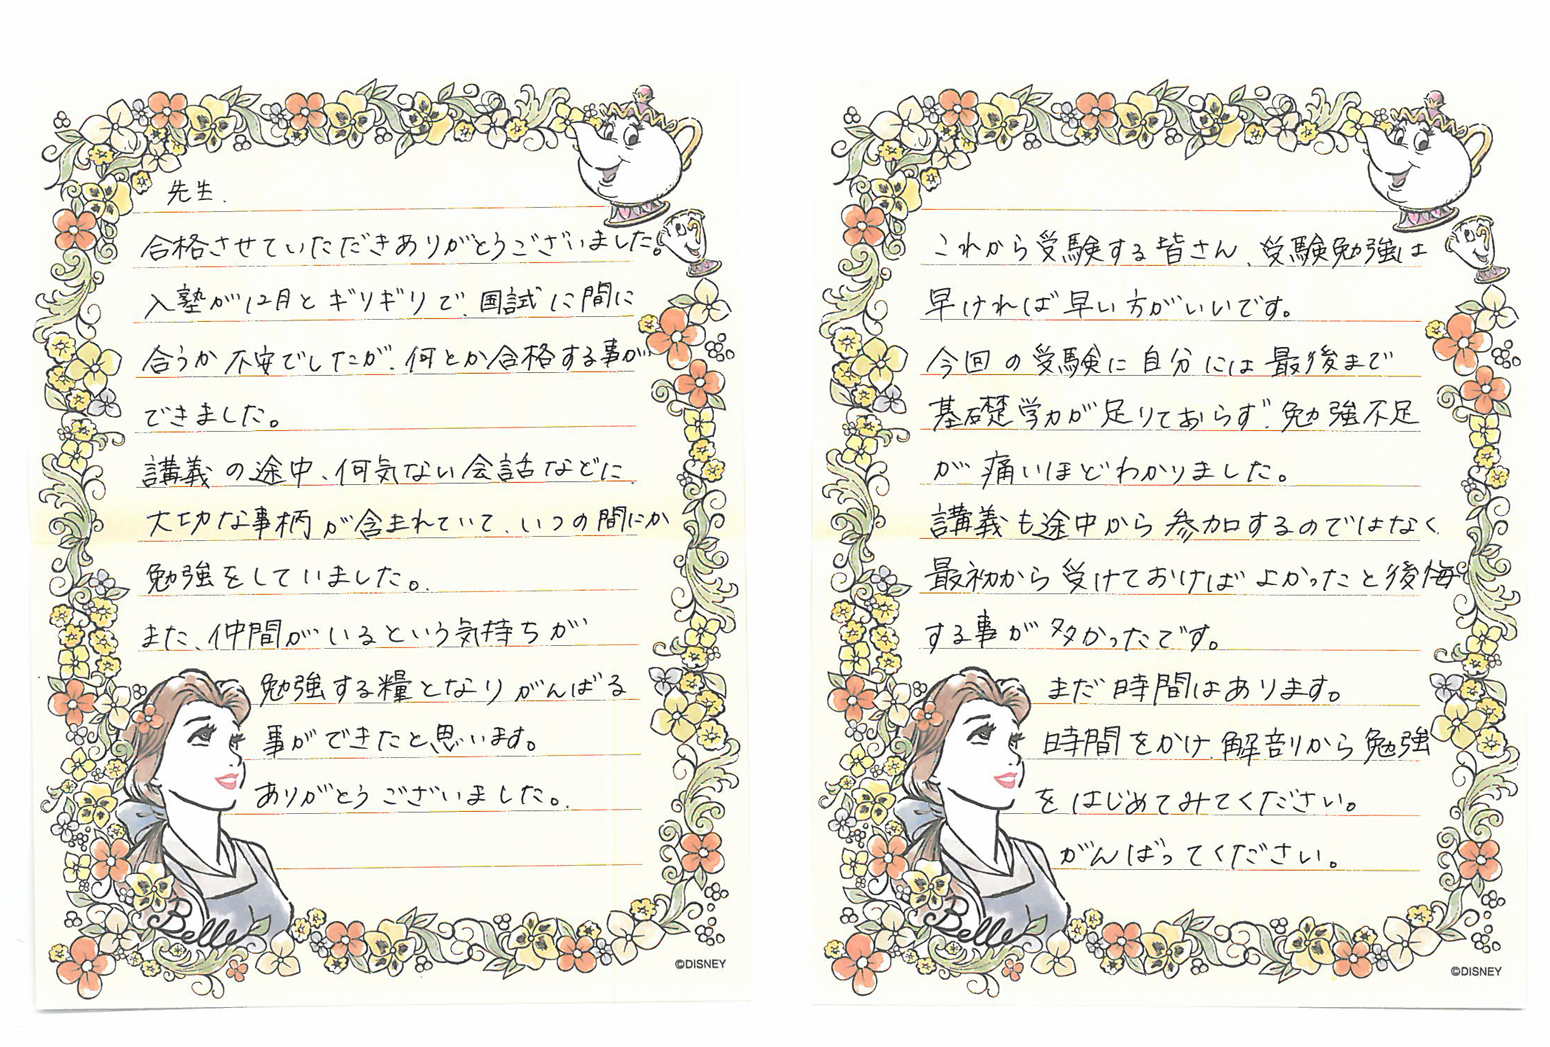 先生.
合格させていただきありがとうございました。
入塾が12月とギリギリで、国試に間に
合うか不安でしたが、何とか合格する事が
できました。
講義の途中、何気ない会話などに、
大切な事柄が含まれていて、いつの間にか
勉強をしていました。
また、仲間がいるという気持ちが
勉強する糧となりがんばる
事ができたと思います。
ありがとうございました。
Belle
©DISNEY
これから受験する皆さん、受験勉強は
早ければ早い方がいいです。
今回の受験に自分には最後まで
基礎学力が足りておらず、勉強不足
が痛いほどわかりました。
講義も途中から参加するのではなく
最初から受けておけばよかったと後悔
する事が多かったです。
まだ時間はあります。
時間をかけ、解剖から勉強
をはじめてみてください。
がんばってください。
Belle
©DISNEY